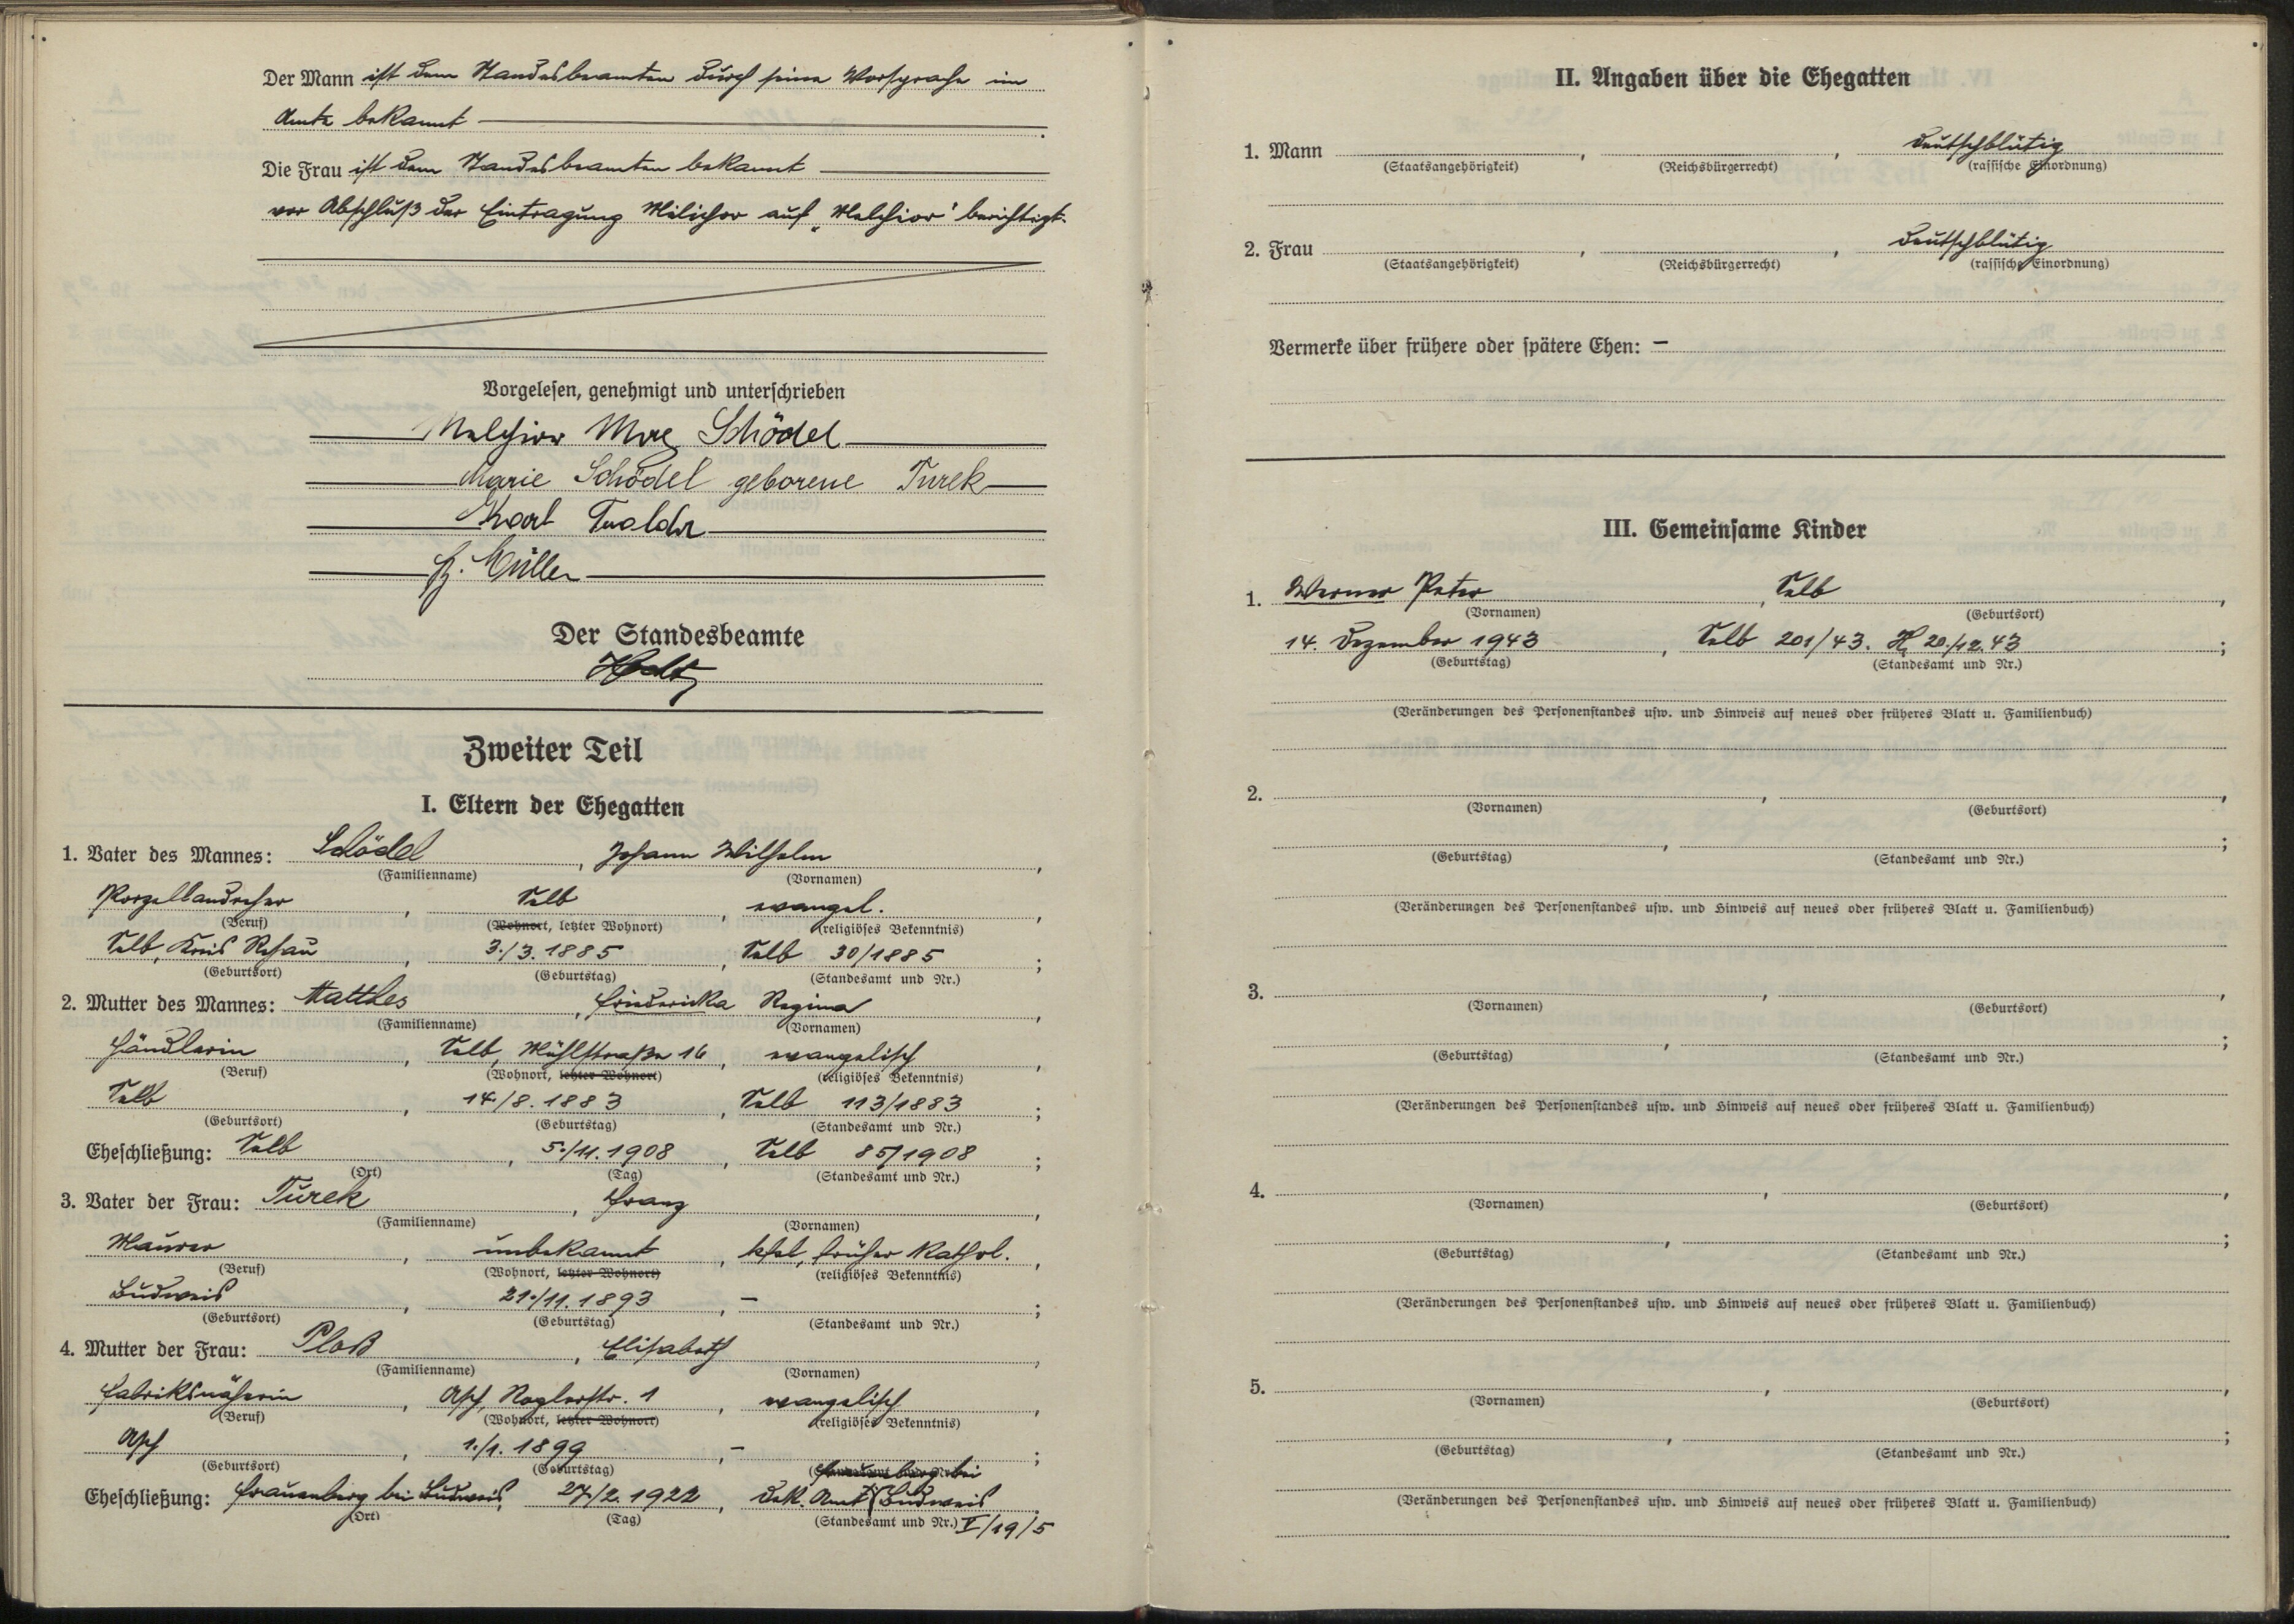 Der Mann ist dem Standesbeamten durch seine Vorsprache im
Amte bekannt
Die Frau ist dem Standesbeamten bekannt
vor Abschluß der Eintragung Milichor auf „Melchior" berichtigt.
Vorgelesen, genehmigt und unterschrieben
Melchior Max Schödel
Marie Schödel geborene Turek
Karl
H. Müller
Der Standesbeamte
Zweiter Teil
I. Eltern der Ehegatten
1. Vater des Mannes: Schödel, Johann Wilhelm,
(Familienname) (Vornamen)
Porzellandreher, Selb, evangel.,
(Beruf) (Wohnort, letzter Wohnort) (religiöses Bekenntnis)
Selb, Kreis Rehau, 3./3. 1885, Selb 30/1885;
(Geburtsort) (Geburtstag) (Standesamt und Nr.)
2. Mutter des Mannes: Matthes, Friedericka Regina,
(Familienname) (Vornamen)
Händlerin, Selb, Mühlstraße 16, evangelisch,
(Beruf) (Wohnort, letzter Wohnort) (religiöses Bekenntnis)
Selb, 14./8. 1883, Selb 113/1883;
(Geburtsort) (Geburtstag) (Standesamt und Nr.)
Eheschließung: Selb, 5./11. 1908, Selb 85/1908;
(Ort) (Tag) (Standesamt und Nr.)
3. Vater der Frau: Turek, Franz,
(Familienname) (Vornamen)
Maurer, unbekannt, früher kathol.,
(Beruf) (Wohnort, letzter Wohnort) (religiöses Bekenntnis)
Budweis, 21./11. 1893, –;
(Geburtsort) (Geburtstag) (Standesamt und Nr.)
4. Mutter der Frau: Ploß, Elisabeth,
(Familienname) (Vornamen)
Fabriksnäherin, Asch, Roglerstr. 1, evangelisch,
(Beruf) (Wohnort, letzter Wohnort) (religiöses Bekenntnis)
Asch, 1./1. 1899, –;
(Geburtsort) (Geburtstag) (Standesamt und Nr.)
Frauenberg bei
Eheschließung: Frauenberg bei Budweis, 27./2. 1922, Dek. Amt Budweis
(Ort) (Tag) (Standesamt und Nr.) V/19/5
II. Angaben über die Ehegatten
1. Mann , , deutschblütig
(Staatsangehörigkeit) (Reichsbürgerrecht) (rassische Einordnung)
2. Frau , , deutschblütig
(Staatsangehörigkeit) (Reichsbürgerrecht) (rassische Einordnung)
Vermerke über frühere oder spätere Ehen: –
III. Gemeinsame Kinder
1. Werner Peter, Selb,
(Vornamen) (Geburtsort)
14. Dezember 1943, Selb 201/43. 20./12. 43;
(Geburtstag) (Standesamt und Nr.)
(Veränderungen des Personenstandes usw. und Hinweis auf neues oder früheres Blatt u. Familienbuch)
2. , ,
(Vornamen) (Geburtsort)
, ;
(Geburtstag) (Standesamt und Nr.)
(Veränderungen des Personenstandes usw. und Hinweis auf neues oder früheres Blatt u. Familienbuch)
3. , ,
(Vornamen) (Geburtsort)
, ;
(Geburtstag) (Standesamt und Nr.)
(Veränderungen des Personenstandes usw. und Hinweis auf neues oder früheres Blatt u. Familienbuch)
4. , ,
(Vornamen) (Geburtsort)
, ;
(Geburtstag) (Standesamt und Nr.)
(Veränderungen des Personenstandes usw. und Hinweis auf neues oder früheres Blatt u. Familienbuch)
5. , ,
(Vornamen) (Geburtsort)
, ;
(Geburtstag) (Standesamt und Nr.)
(Veränderungen des Personenstandes usw. und Hinweis auf neues oder früheres Blatt u. Familienbuch)